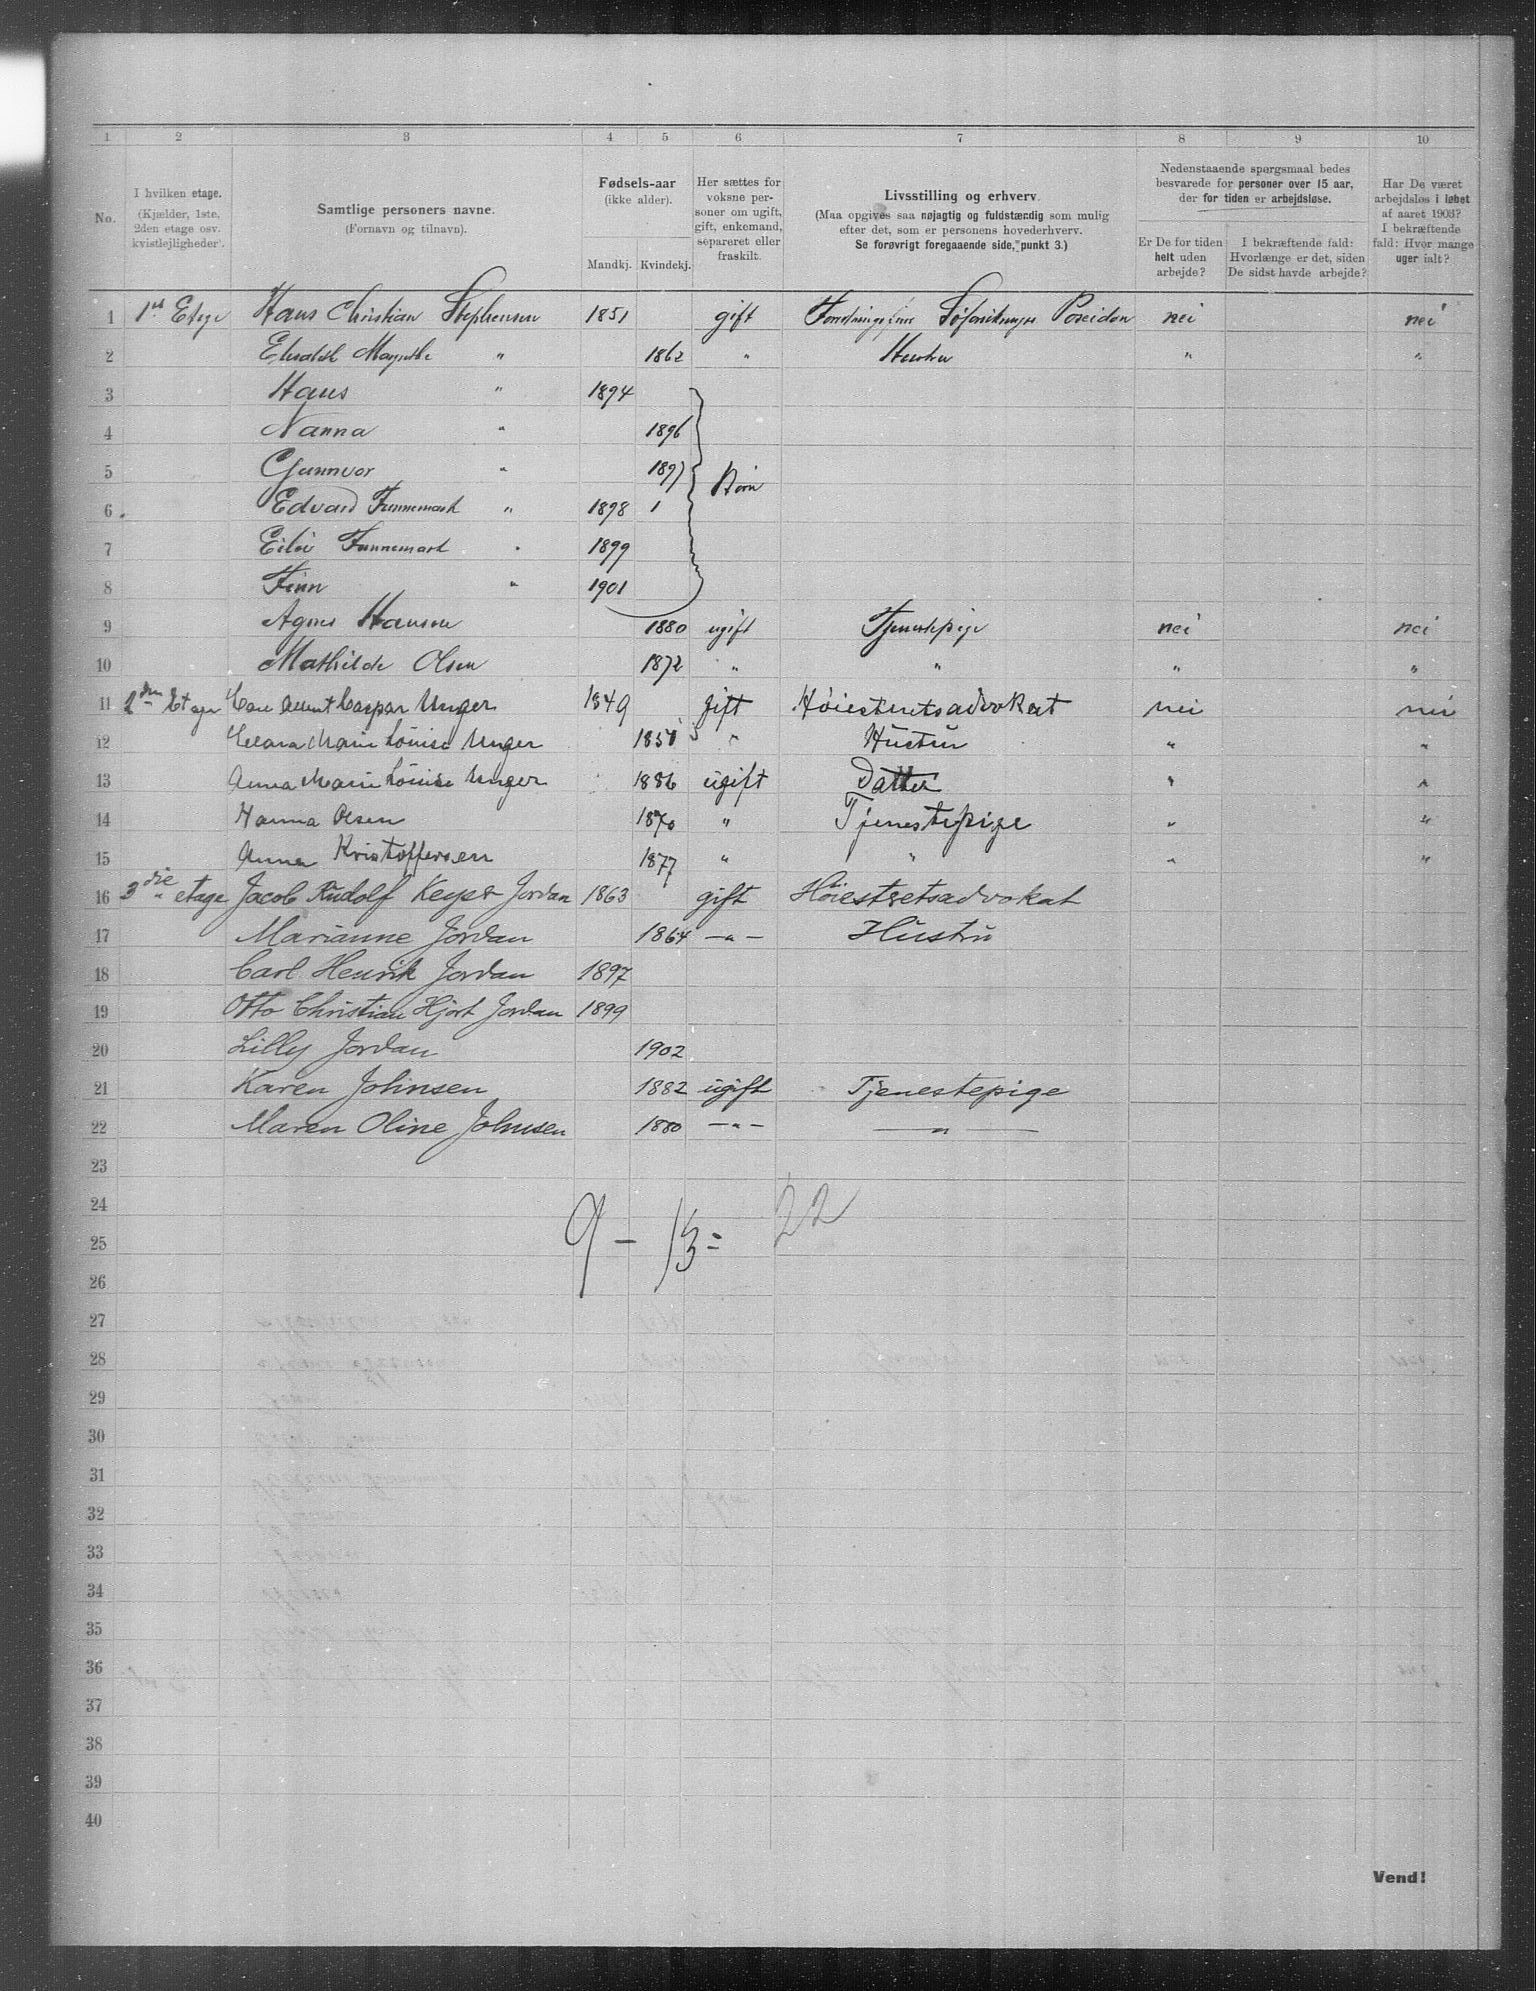 1 2 3 4 5 6 7 8 9 10
No.
I hvilken etage.
(Kjælder, 1ste,
2den etage osv.
kvistlejligheder).
Samtlige personers navne.
(Fornavn og tilnavn).
Fødsels-aar
(ikke alder).
Mandkj. Kvindekj.
Her sættes for
voksne per-
soner om ugift,
gift, enkemand,
separeret eller
fraskilt.
Livsstilling og erhverv.
(Maa opgives saa nøjagtig og fuldstændig som mulig
efter det, som er personens hovederhverv.
Se forøvrigt foregaaende side, punkt 3.)
Nedenstaaende spørgsmaal bedes
besvarede for personer over 15 aar,
der for tiden er arbejdsløse.
Er De for tiden
helt uden
arbejde?
I bekræftende fald:
Hvorlænge er det, siden
De sidst havde arbejde?
Har De været
arbejdsløs i løbet
af aaret 1903?
I bekræftende
fald: Hvor mange
uger ialt?
1 1st Etage Hans Christian Stephensen 1851 gift Poseidon nei nei
2 " 1862 " Hustru " "
3 Hans " 1894
4 Nanna " 1896
5 Gunnvor " 1897 Børn
6 Edvard Finnemark " 1898 1
7 Finnemark " 1899
8 Finn " 1901
9 Agnes Hansen 1880 ugift Tjenestepige nei nei
10 Mathilde Olsen 1872 " " " "
11 2den Etage Caspar Unger 1849 gift Høiesteretsadvokat nei nei
12 Clara Marie Louise Unger 185 " Hustru " "
13 Anna Marie Louise Unger 1886 ugift Datter " "
14 Hanna Olsen 1870 " Tjenestepige " "
15 Anna Kristoffersen 1877 " " " "
16 3die etage Jacob Rudolf Keyser Jordan 1863 gift Høiesteretsadvokat
17 Marianne Jordan 1864 —"— Hustru
18 Carl Henrik Jordan 1897
19 Otto Christian Hjort Jordan 1899
20 Lilly Jordan 1902
21 Karen Johnsen 1882 ugift Tjenestepige
22 Maren Oline Johnsen 1880 —"— —"—
23
24
9 – 13 = 22
25
26
27
28
29
30
31
32
33
34
35
36
37
38
39
40
Vend!